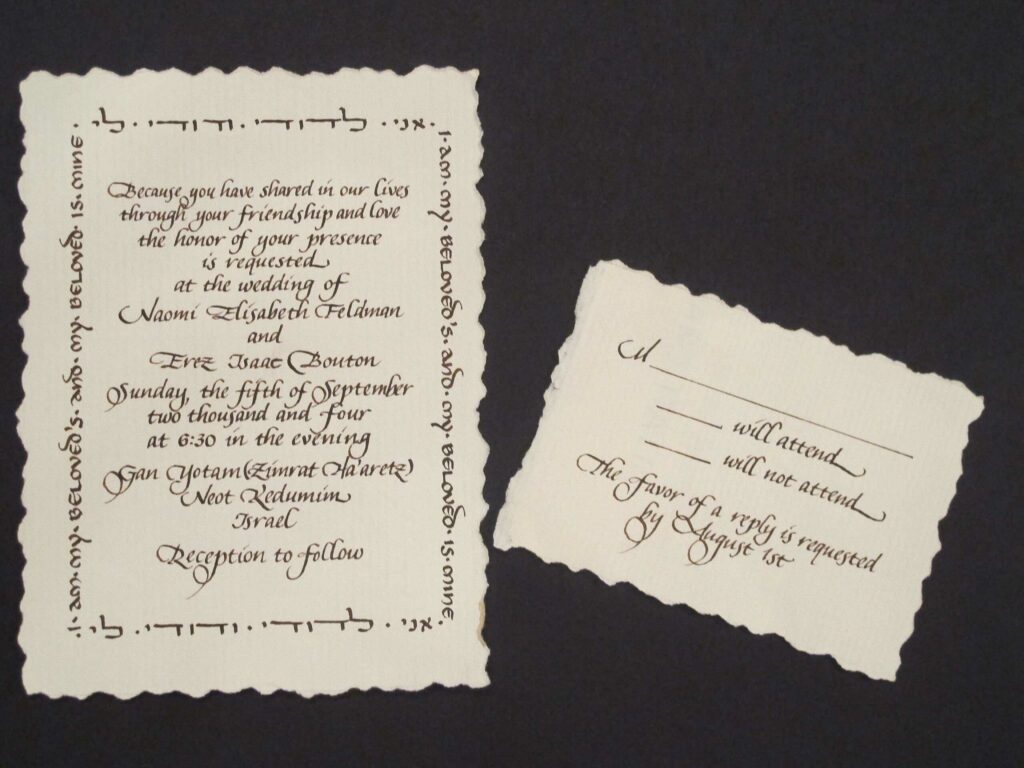 אני · לדודי · ודודי · לי
I · am · my · BELOVED'S · and · my · BELOVED · IS · MINE ·
Because you have shared in our lives
through your friendship and love
the honor of your presence
is requested
at the wedding of
Naomi Elisabeth Feldman
and
Erez Isaac Bouton
Sunday, the fifth of September
two thousand and four
at 6:30 in the evening
Gan Yotam (Zimrat Ha'aretz)
Neot Kedumim
Israel
Reception to follow
I · am · my · BELOVED'S · and · my · BELOVED · IS · MINE ·
אני · לדודי · ודודי · לי
M
will attend
will not attend
The favor of a reply is requested
by August 1st